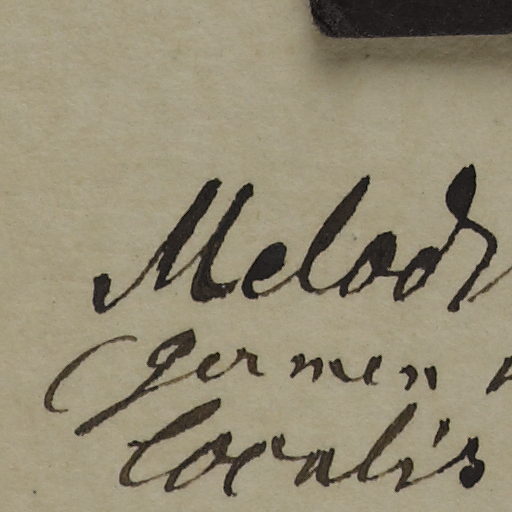 Melod
(germen
localis